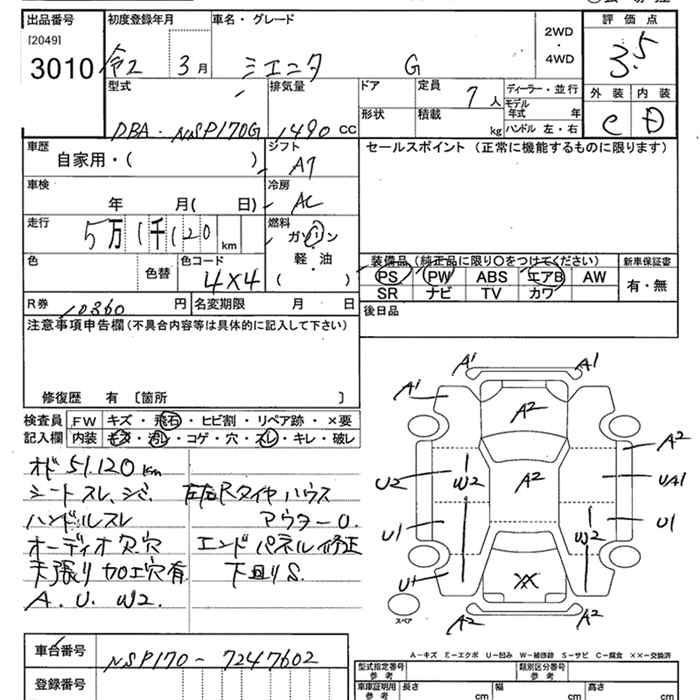 出品番号 初度登録年月 車名・グレード 2WD・4WD 評価点
[2049]
3010 令2 3月 シエンタ G 3.5
型式 排気量 ドア 定員 7人 ディーラー・並行 外装 内装
形状 積載 kg モデル年式 年 ハンドル 左・右
DBA・NSP170G 1490 CC C D
車歴 シフト セールスポイント (正常に機能するものに限ります)
自家用・( ) AT
車検 冷房
年 月( 日) AC
走行 燃料
5万1千120 km ガソリン・軽油 ( )
色 色替 色コード 4X4 装備品 (純正品に限り○をつけてください) 新車保証書
PS PW ABS エアB AW 有・無
SR ナビ TV カワ
R券 10360 円 名変期限 月 日 後日品
注意事項申告欄 (不具合内容等は具体的に記入して下さい)
修復歴 有 〔箇所 〕
検査員記入欄 FW キズ・飛石・ヒビ割・リペア跡・×要
内装 キズ・汚れ・コゲ・穴・スレ・キレ・破レ
オド 51,120 km
シートスレ、シミ 左右Rタイヤハウス
ハンドルスレ アウターU.
オーディオ欠.穴 エンドパネル修正
天張り加工穴有 下廻りS.
A. U. W2.
A1 A1
A1 A2
A2
U2 W2 A2 UA1
U1 W2 U1
U1 XX
スペア A2 A2
A-キズ E-エクボ U-凹み W-補修跡 S-サビ C-腐食 ××-交換済
車台番号 NSP170-7247602
登録番号
型式指定番号 参考 類別区分番号 参考
車庫証明用 参考 長さ cm 幅 cm 高さ cm